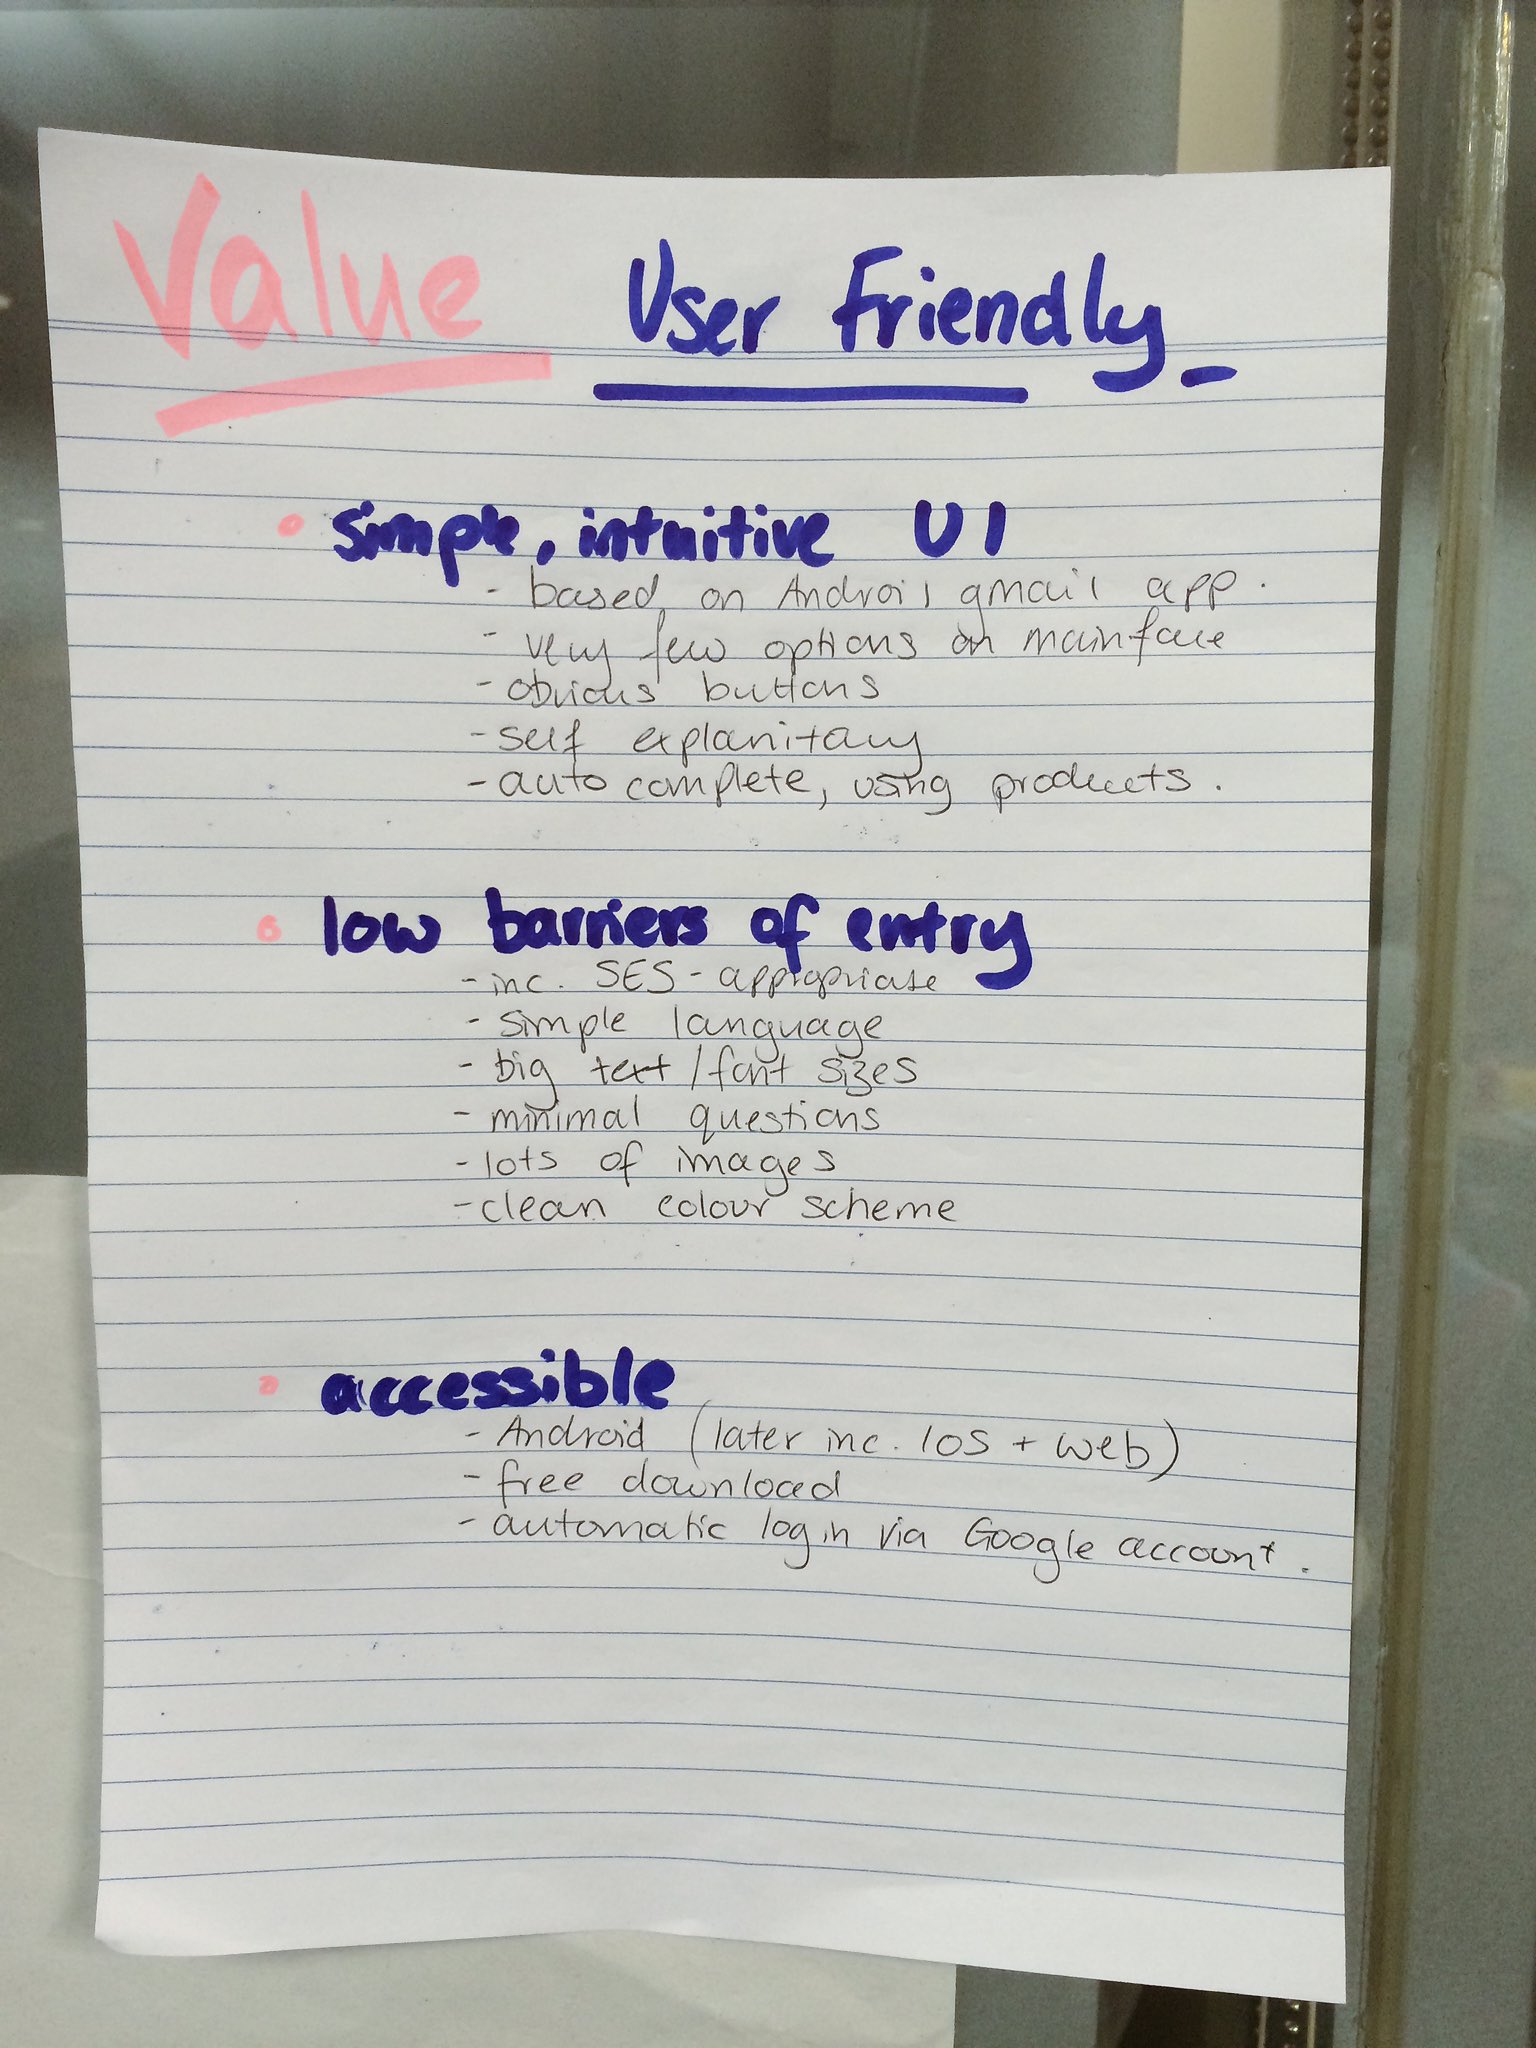 Value User Friendly
• simple, intuitive UI
- based on Android gmail app.
- very few options on mainface
- obvious buttons
- self explanitary
- auto complete, using products.
• low barriers of entry
- inc. SES - appropriate
- simple language
- big text / font sizes
- minimal questions
- lots of images
- clean colour scheme
• accessible
- Android (later inc. IOS + web)
- free download
- automatic login via Google account.